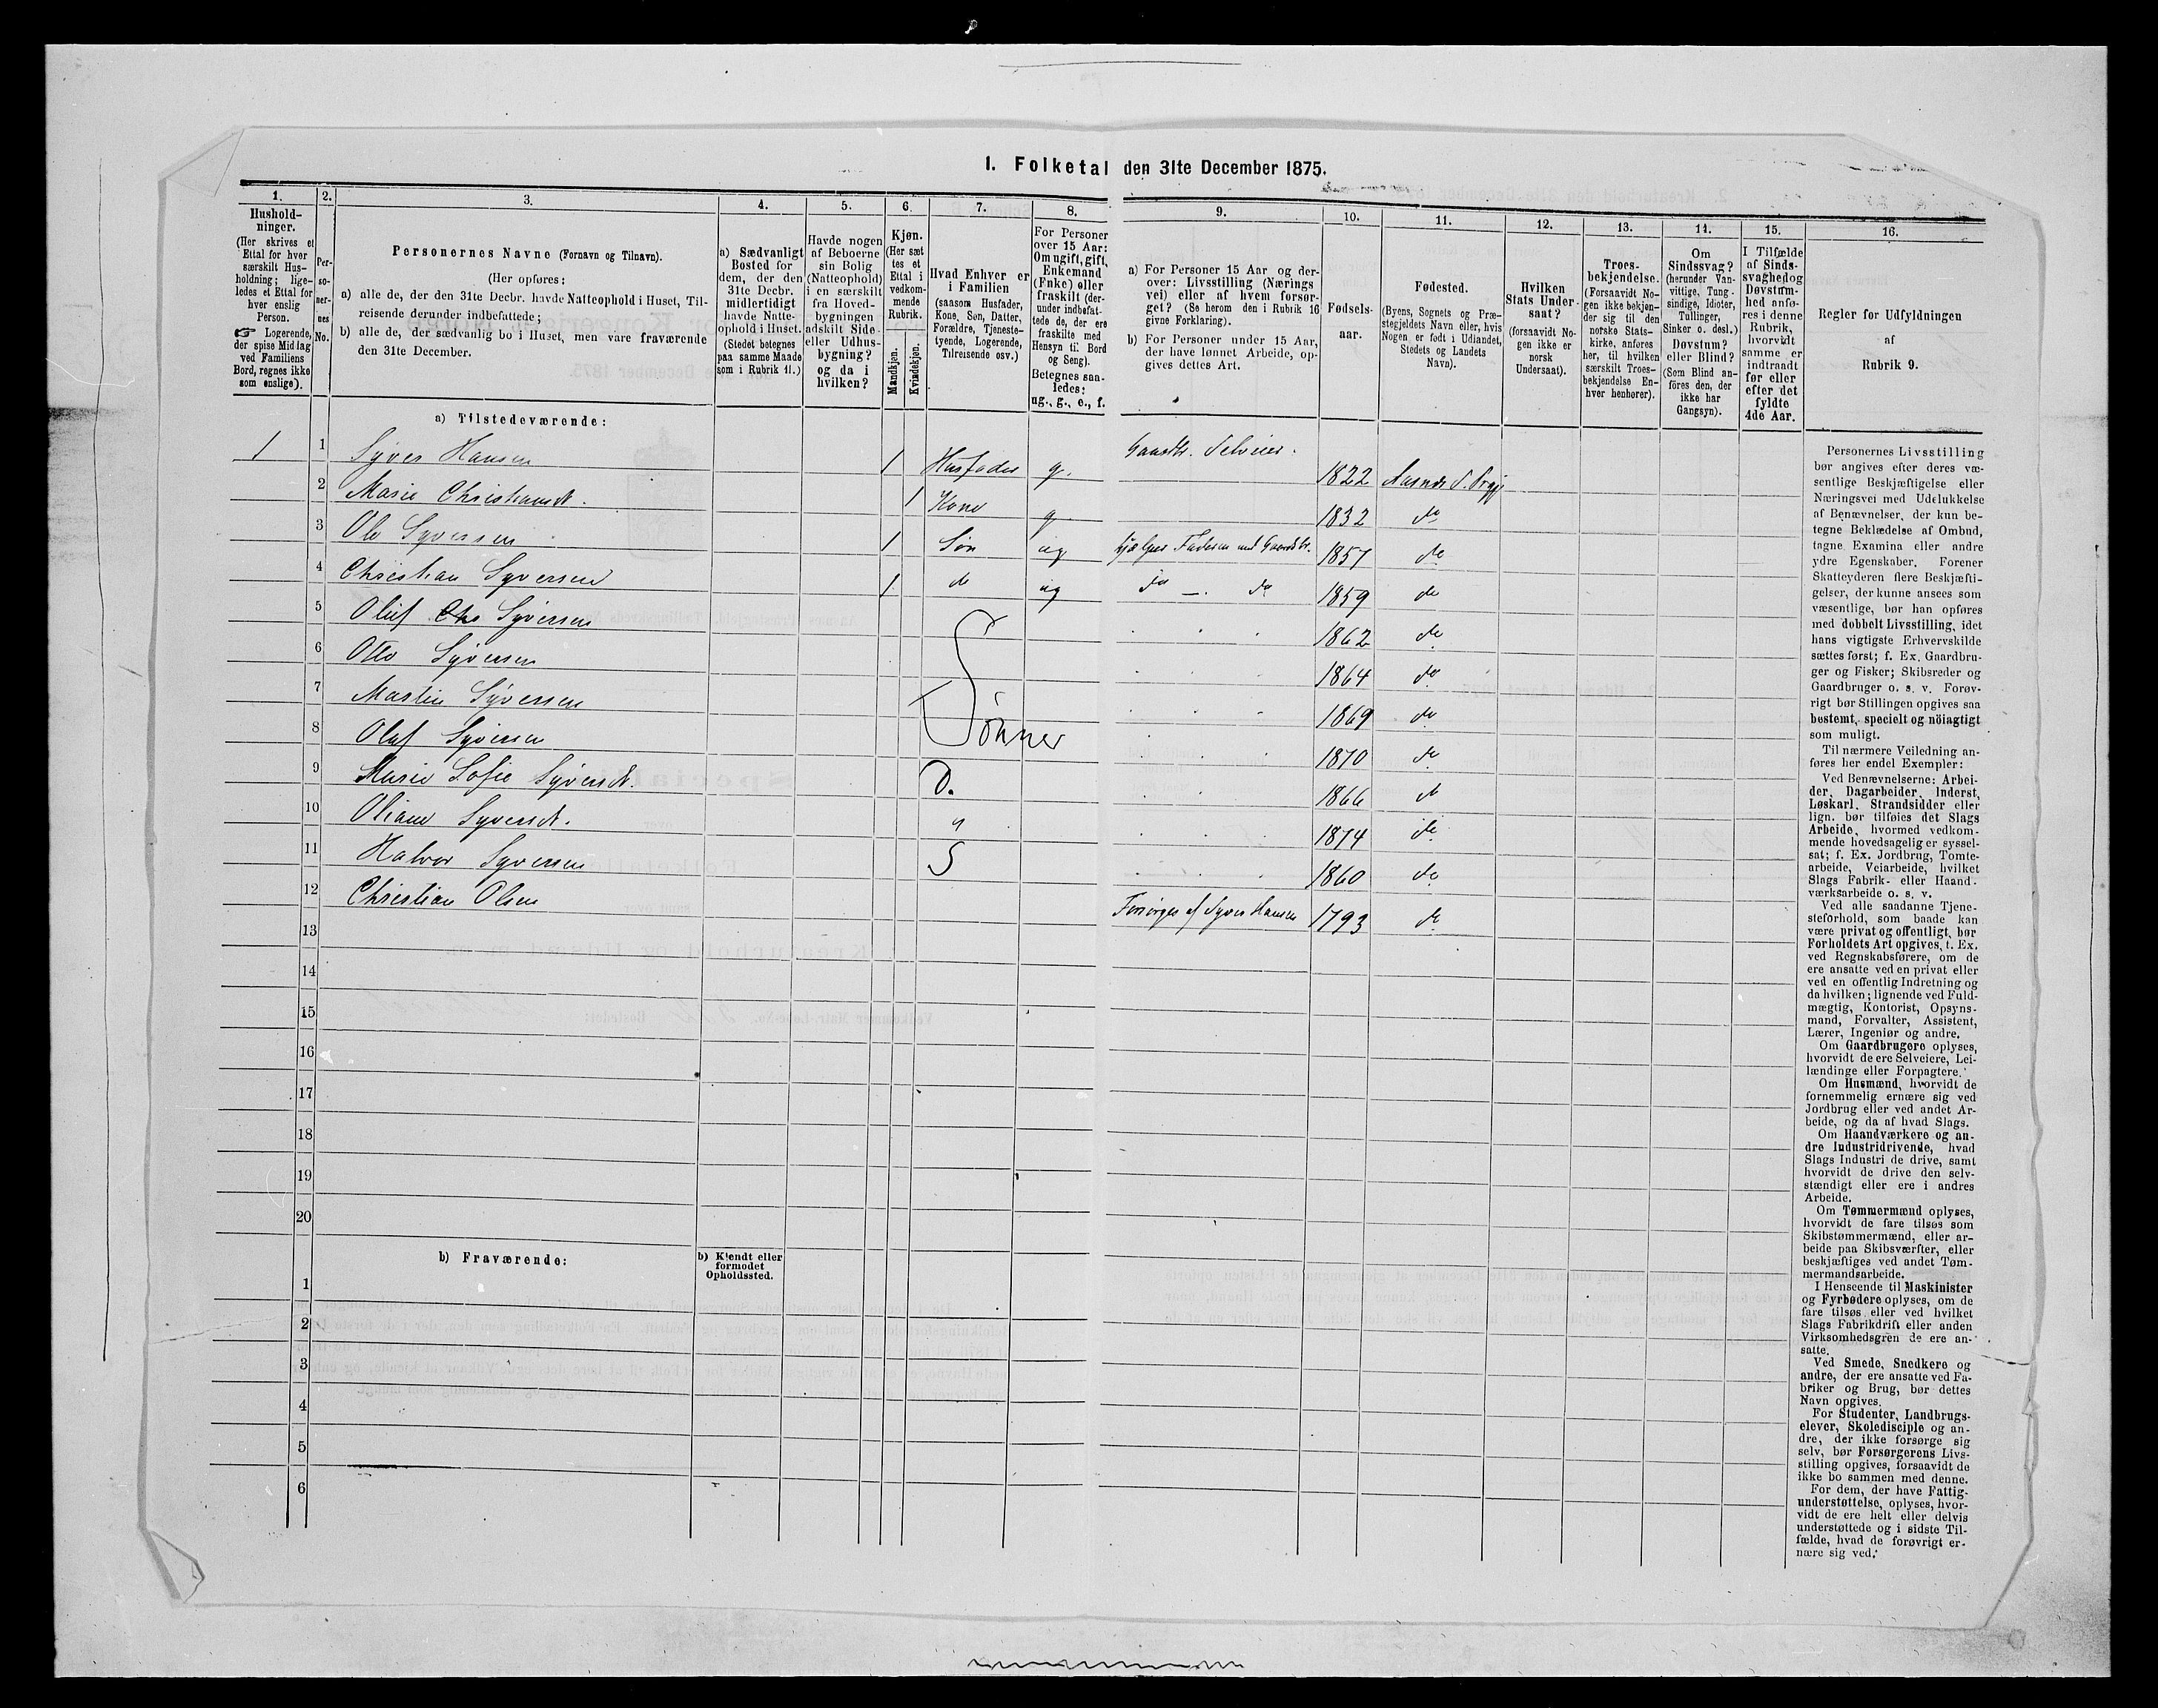 1. Folketal den 31te December 1875.
1.
Hushold-
ninger.
(Her skrives et
Ettal for hver
særskilt Hus-
holdning; lige-
ledes et Ettal for
hver enslig
Person.
☞ Logerende,
der spise Middag
ved Familiens
Bord, regnes ikke
som enslige).
2.
Per-
so-
ner-
nes
No.
3.
Personernes Navne (Fornavn og Tilnavn).
(Her opføres:
a) alle de, der den 31te Decbr. havde Natteophold i Huset, Til-
reisende derunder indbefattede;
b) alle de, der sædvanlig bo i Huset, men vare fraværende
den 31te December.
4.
a) Sædvanligt
Bosted for
dem, der den
31te Decbr.
midlertidigt
havde Natte-
ophold i Huset.
(Stedet betegnes
paa samme Maade
som i Rubrik 11.)
5.
Havde nogen
af Beboerne
sin Bolig
(Natteophold)
i en særskilt
fra Hoved-
bygningen
adskilt Side-
eller Udhus-
bygning?
og da i
hvilken?
6.
Kjøn.
(Her sæt
tes et
Ettal i
vedkom-
mende
Rubrik.
Mandkjøn.
Kvindekjøn.
7.
Hvad Enhver er
i Familien
(saasom Husfader,
Kone, Søn, Datter,
Forældre, Tjeneste-
tyende, Logerende,
Tilreisende osv.)
8.
For Personer
over 15 Aar:
Om ugift, gift,
Enkemand
(Enke) eller
fraskilt (der-
under indbefat-
tede de, der ere
fraskilte med
Hensyn til Bord
og Seng).
Betegnes saa-
ledes:
ug., g., e., f.
9.
a) For Personer 15 Aar og der-
over: Livsstilling (Nærings
vei) eller af hvem forsør-
get? (Se herom den i Rubrik 16
givne Forklaring).
b) For Personer under 15 Aar,
der have lønnet Arbeide, op-
gives dettes Art.
10.
Fødsels-
aar.
11.
Fødested.
(Byens, Sognets og Præ-
stegjeldets Navn eller, hvis
Nogen er født i Udlandet,
Stedets og Landets
Navn).
12.
Hvilken
Stats Under-
saat?
(forsaavidt No-
gen ikke er
norsk
Undersaat).
13.
Troes-
bekjendelse.
(Forsaavidt No-
gen ikke bekjen-
der sig til den
norske Stats-
kirke, anføres
her, til hvilken
særskilt Troes-
bekjendelse En-
hver henhører).
14.
Om
Sindssvag?
(herunder Van-
vittige, Tung-
sindige, Idioter,
Tullinger,
Sinker o. desl.)
Døvstum?
eller Blind?
(Som Blind an-
føres den, der
ikke har
Gangsyn).
15.
I Tilfælde
af Sinds-
svaghed og
Døvstum-
hed anfø-
res i denne
Rubrik,
hvorvidt
samme er
indtraadt
før eller
efter det
fyldte
4de Aar.
16.
Regler for Udfyldningen
af
Rubrik 9.
a) Tilstedeværende:
1 1 Syver Hansen 1 Husfader g. Gaardbr. Selveier. 1822 Aasnes S. Prgj
2 Marie Christiansdt. 1 Kone g 1832 do
3 Ole Syversen 1 Søn ug hjælper Faderen med Gaardsbr. 1857 do
4 Christian Syversen 1 do ug do — do 1859 do
5 Oluf Chr Syversen 1862 do
6 Otto Syversen 1864 do
7 Martin Syversen 1869 do
8 Olaf Syversen Sønner 1870 do
9 Marie Sofie Syversdt. D. 1866 do
10 Oliane Syversdt. " 1874 do
11 Halvor Syversen S 1860 do
12 Christian Olsen Forsørges af Syver Hansen 1793 do
13
14
15
16
17
18
19
20
b) Fraværende:
b) Kjendt eller
formodet
Opholdssted.
1
2
3
4
5
6
Personernes Livsstilling
bør angives efter deres væ-
sentlige Beskjæftigelse eller
Næringsvei med Udelukkelse
af Benævnelser, der kun be-
tegne Beklædelse af Ombud,
tagne Examina eller andre
ydre Egenskaber. Forener
Skatteyderen flere Beskjæfti-
gelser, der kunne ansees som
væsentlige, bør han opføres
med dobbelt Livsstilling, idet
hans vigtigste Erhvervskilde
sættes først; f. Ex. Gaardbru-
ger og Fisker; Skibsreder og
Gaardbruger o. s. v. Forøv-
rigt bør Stillingen opgives saa
bestemt, specielt og nöiagtigt
som muligt.
Til nærmere Veiledning an-
føres her endel Exempler:
Ved Benævnelserne: Arbei-
der, Dagarbeider, Inderst,
Løskarl, Strandsidder eller
lign. bør tilføies det Slags
Arbeide, hvormed vedkom-
mende hovedsagelig er syssel-
sat; f. Ex. Jordbrug, Tomte-
arbeide, Veiarbeide, hvilket
Slags Fabrik- eller Haand-
værksarbeide o. s. v.
Ved alle saadanne Tjene-
steforhold, som baade kan
være privat og offentligt, bør
Forholdets Art opgives, t. Ex.
ved Regnskabsførere, om de
ere ansatte ved en privat eller
ved en offentlig Indretning og
da hvilken; lignende ved Fuld-
mægtig, Kontorist, Opsyns-
mand, Forvalter, Assistent,
Lærer, Ingeniør og andre.
Om Gaardbrugere oplyses,
hvorvidt de ere Selveiere, Lei-
lændinge eller Forpagtere.
Om Husmænd, hvorvidt de
fornemmelig ernære sig ved
Jordbrug eller ved andet Ar-
beide, og da af hvad Slags.
Om Haandværkere og an-
dre Industridrivende, hvad
Slags Industri de drive, samt
hvorvidt de drive den selv-
stændigt eller ere i andres
Arbeide.
Om Tømmermænd oplyses,
hvorvidt de fare tilsøs som
Skibstømmermænd, eller ar-
beide paa Skibsværfter, eller
beskjæftiges ved andet Tøm-
mermandsarbeide.
I Henseende til Maskinister
og Fyrbødere oplyses, om de
fare tilsøs eller ved hvilket
Slags Fabrikdrift eller anden
Virksomhedsgren de ere an-
satte.
Ved Smede, Snedkere og
andre, der ere ansatte ved Fa-
briker og Brug, bør dettes
Navn opgives.
For Studenter, Landbrugs-
elever, Skoledisciple og an-
dre, der ikke forsørge sig
selv, bør Forsørgerens Livs-
stilling opgives, forsaavidt de
ikke bo sammen med denne.
For dem, der have Fattig-
understøttelse, oplyses, hvor-
vidt de ere helt eller delvis
understøttede og i sidste Til-
fælde, hvad de forøvrigt er-
nære sig ved.